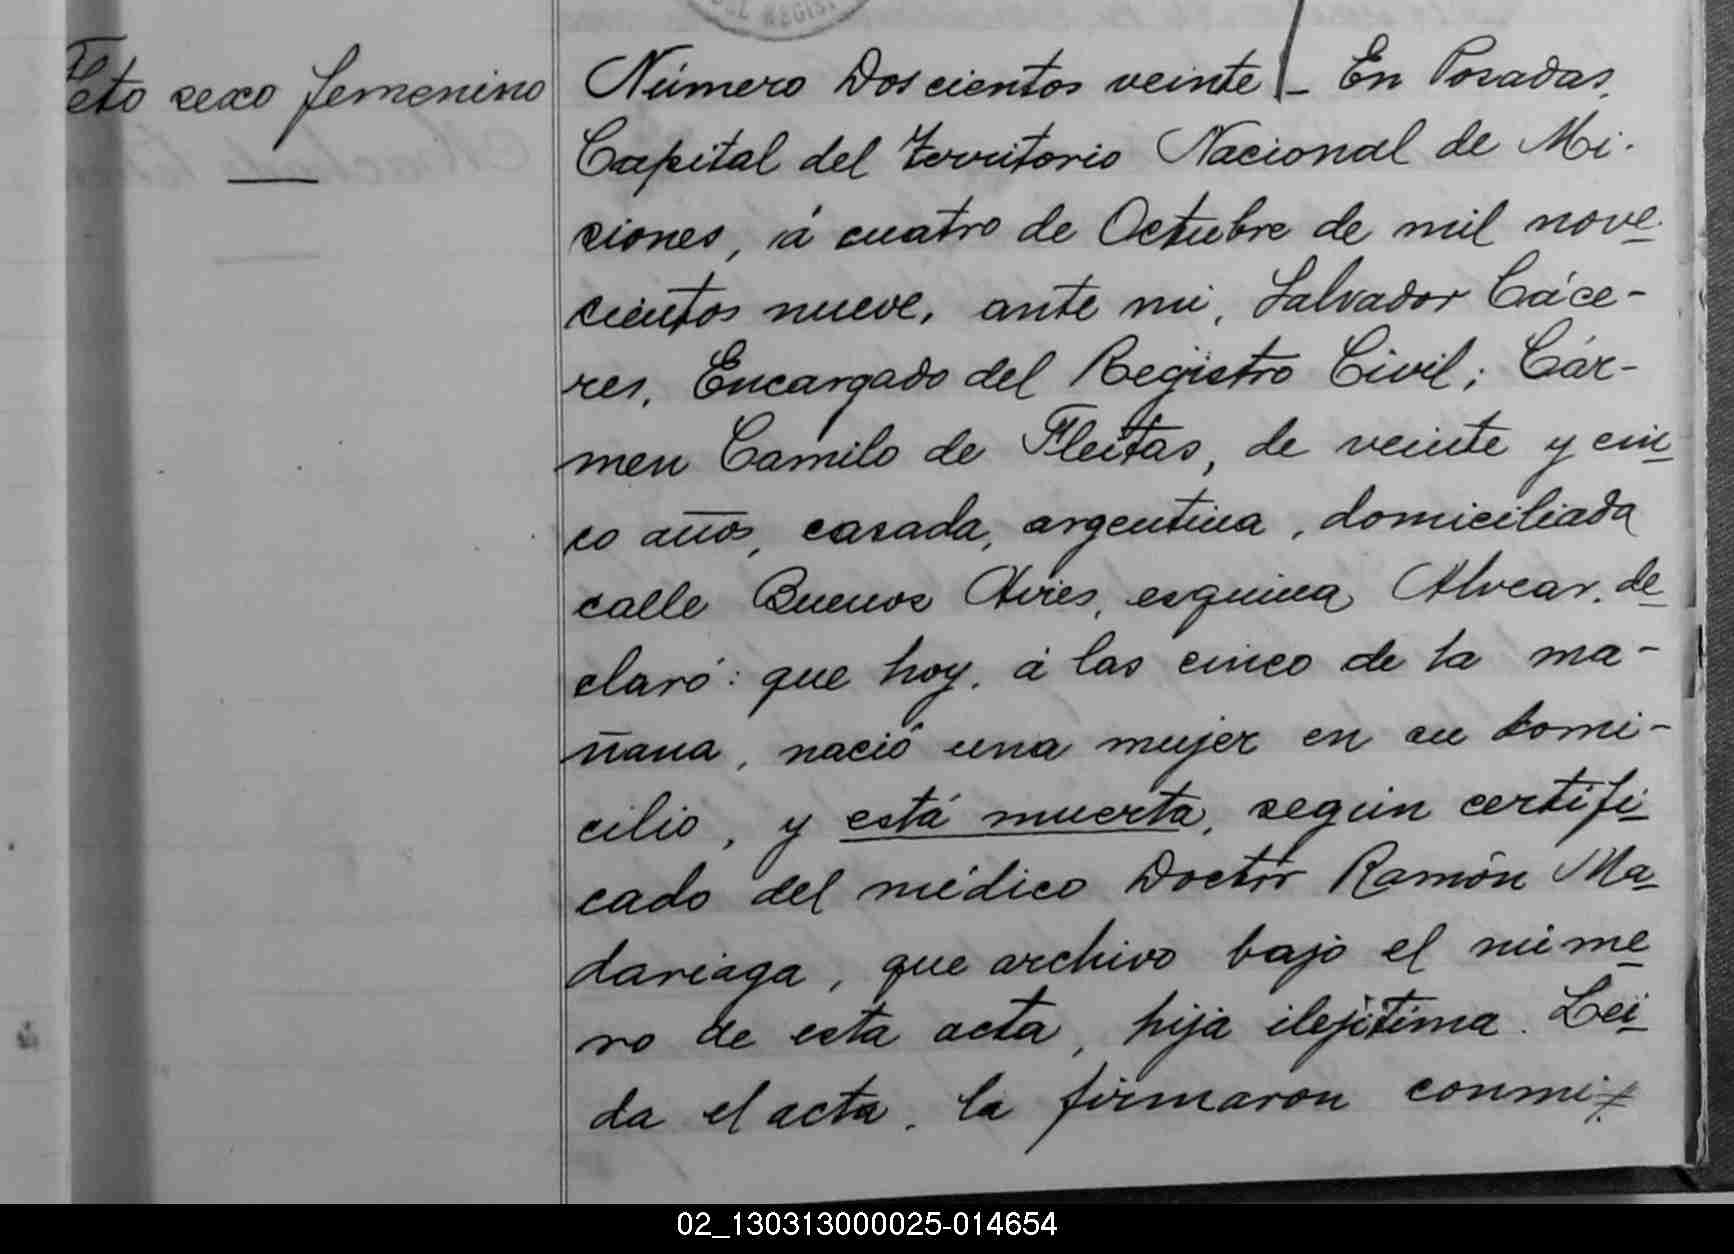 DEL REGIS
Feto sexo femenino
Número Doscientos veinte - En Posadas,
Capital del Territorio Nacional de Mi-
siones, á cuatro de Octubre de mil nove-
cientos nueve, ante mi, Salvador Cáce-
res, Encargado del Registro Civil; Cár-
men Camilo de Fleitas, de veinte y cin-
co años, casada, argentina, domiciliada
calle Buenos Aires, esquina Alvear, de-
claró: que hoy, á las cinco de la ma-
ñana, nació una mujer en su domi-
cilio, y está muerta, según certifi-
cado del médico Doctor Ramón Ma-
dariaga, que archivo bajo el núme-
ro de esta acta, hija ilejítima. Leí-
da el acta, la firmaron conmi-
02_130313000025-014654